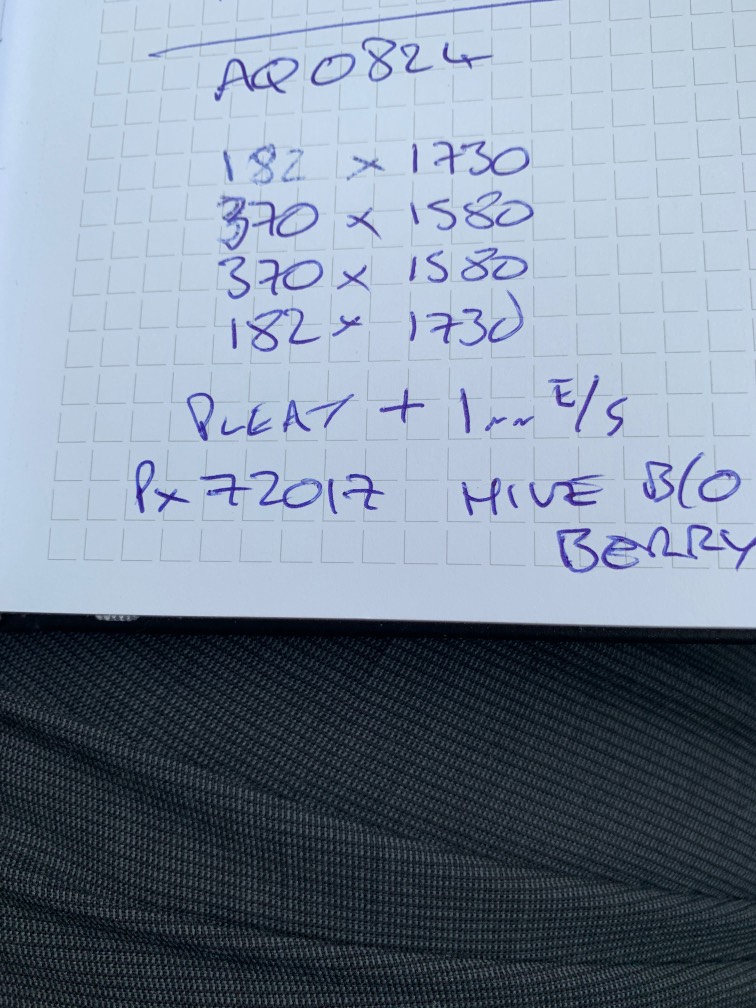 AQ0824
182 x 1730
370 x 1580
370 x 1580
182 x 1730
PLEAT + 1mm E/S
Px72017 HIVE B/O
BERRY